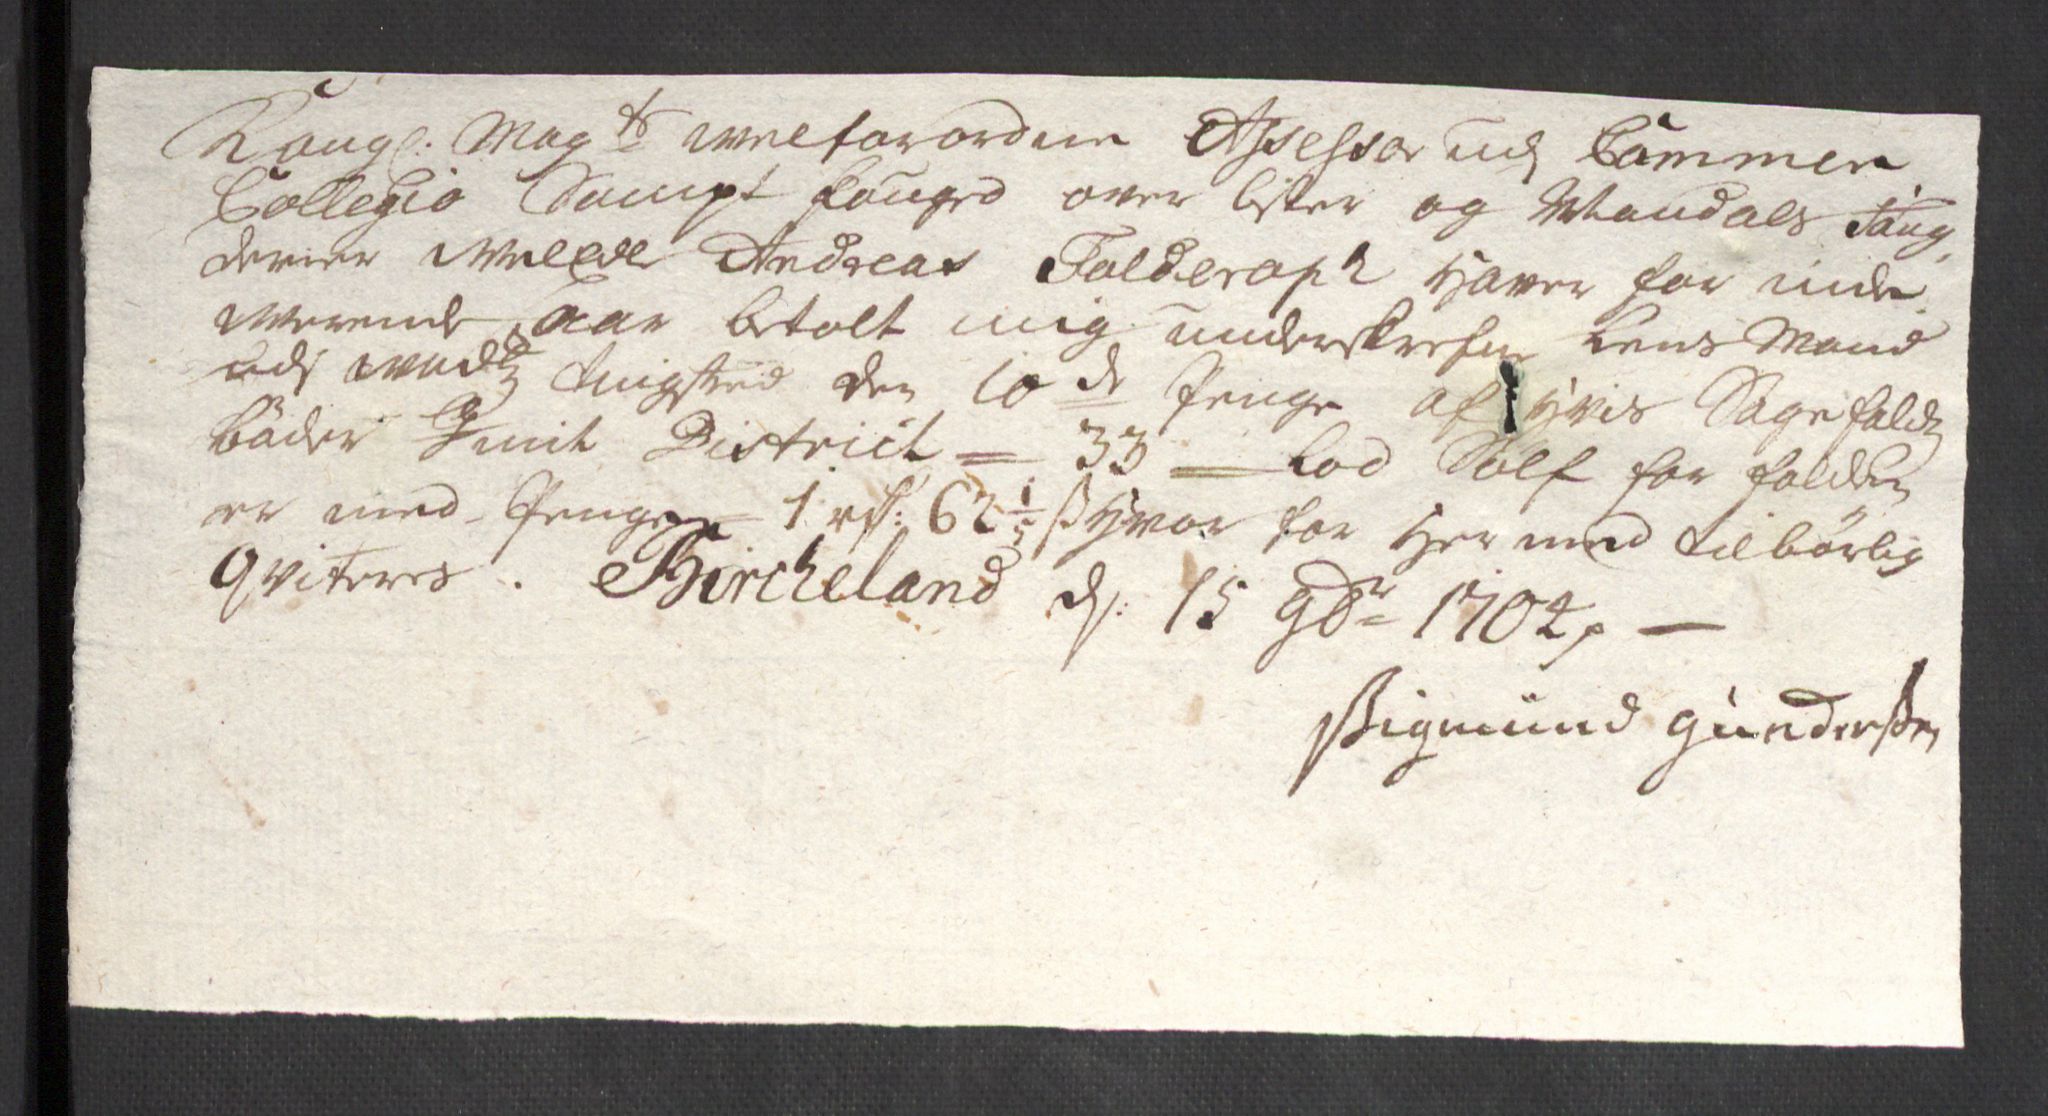 Kongl: Mayts welforordnede Assessor udj Cammer
Collegio Sampt fouged over Lister og Mandals foug,
derier Wel Edle Andreas Folderoph Hawer for inde
werende aar betalt mig underskrefne Lens Mand
udj tingsted den 10de Penge af Hvis Sagefaldz
bøder J mit District = 33 = Lod Sølf for falden
er med Penge = 1 rdr: 62½ ß Hvor for Her med tilbørlig
qviteres. Bircheland dj: 15 9br 1704, —
Sigmund Gunderßen